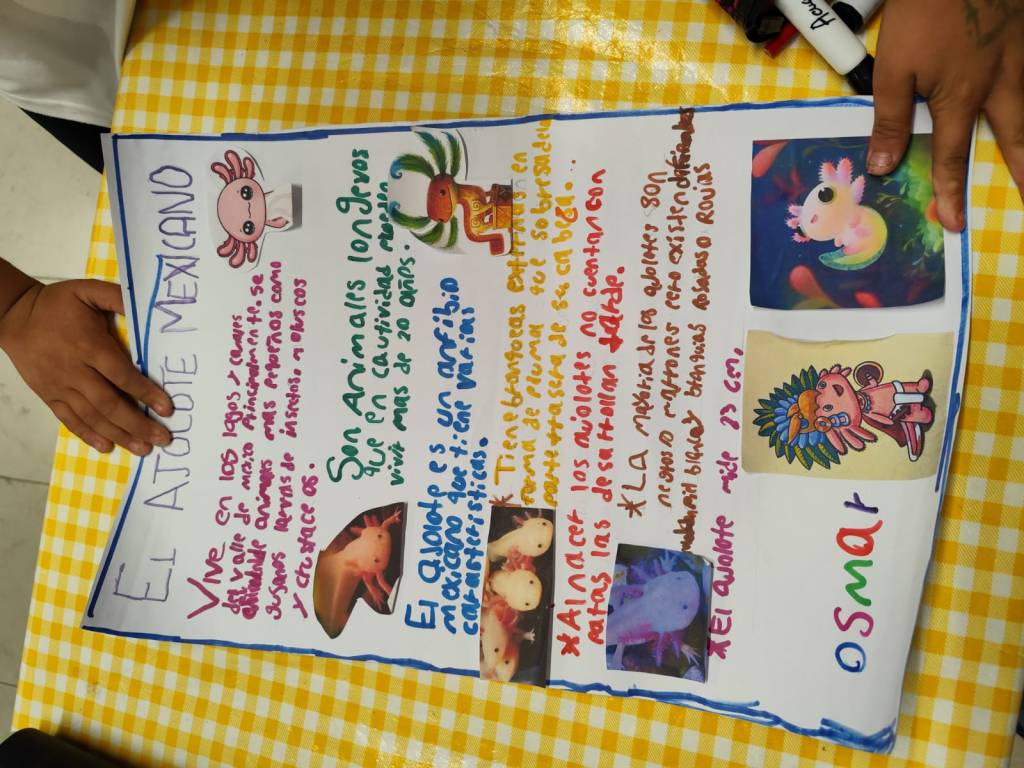 EL AJOLOTE MEXICANO
Vive en los lagos y canales
del valle de Mexico Principalmente. se
animales mas pequeños como
gusanos larvas de insectos, moluscos
y crustaceos.
Son Animales longevos
que en cautividad pueden
vivir mas de 20 años.
El ajolote es un anfibio
mexicano que tiene varias
caracteristicas.
* Tiene branqueas externas en
forma de pluma que sobresa de la
parte trasera de su cabeza...
* Al nacer los ajolotes no cuentan con
patas las desarrollan tarde.
* La mayoria de los ajolotes son
negros o marrones pero existen
blancas rosadas
* El ajolote mide 23 cm.
osmar